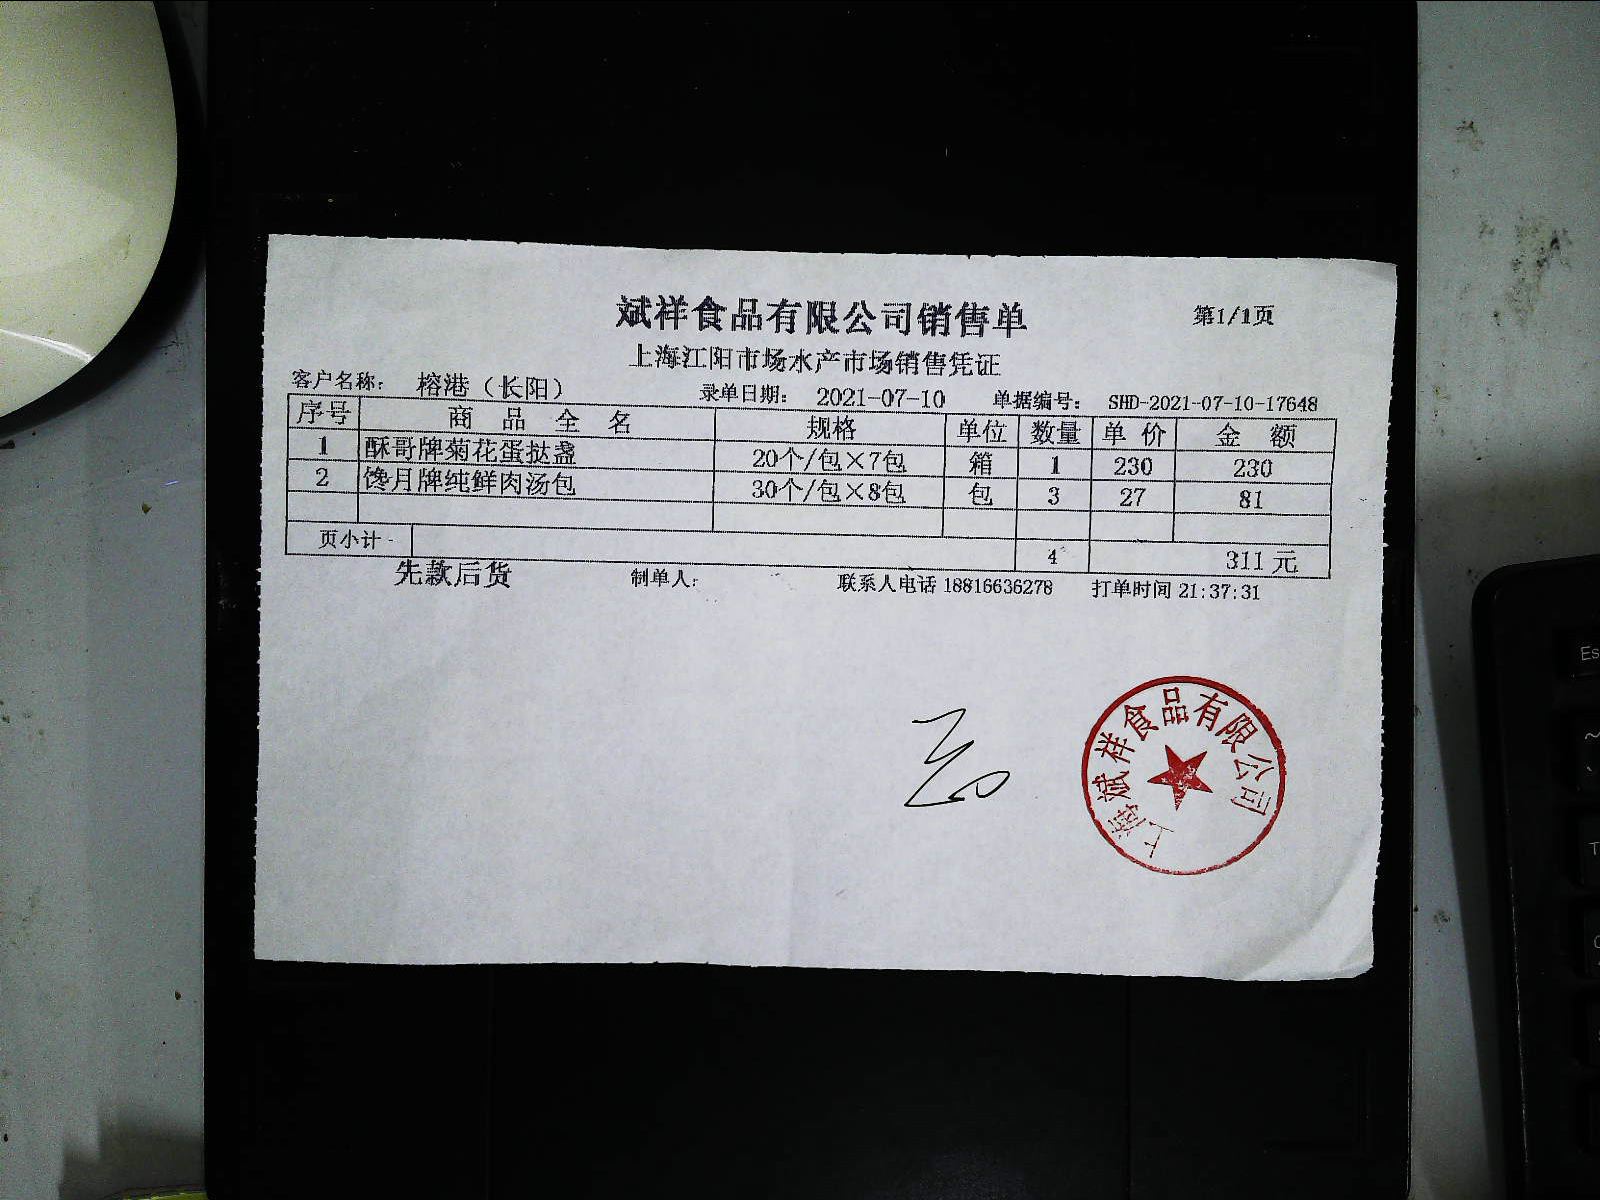 斌祥食品有限公司销售单
第1/1页
上海江阳市场水产市场销售凭证
客户名称： 榕港（长阳） 录单日期： 2021-07-10 单据编号： SHD-2021-07-10-17648
序号 商品全名 规格 单位 数量 单价 金额
1 酥哥牌菊花蛋挞盏 20个/包×7包 箱 1 230 230
2 馋月牌纯鲜肉汤包 30个/包×8包 包 3 27 81
页小计 4 311元
先款后货 制单人： 联系人电话 18816636278 打单时间 21:37:31
上海斌祥食品有限公司
Es